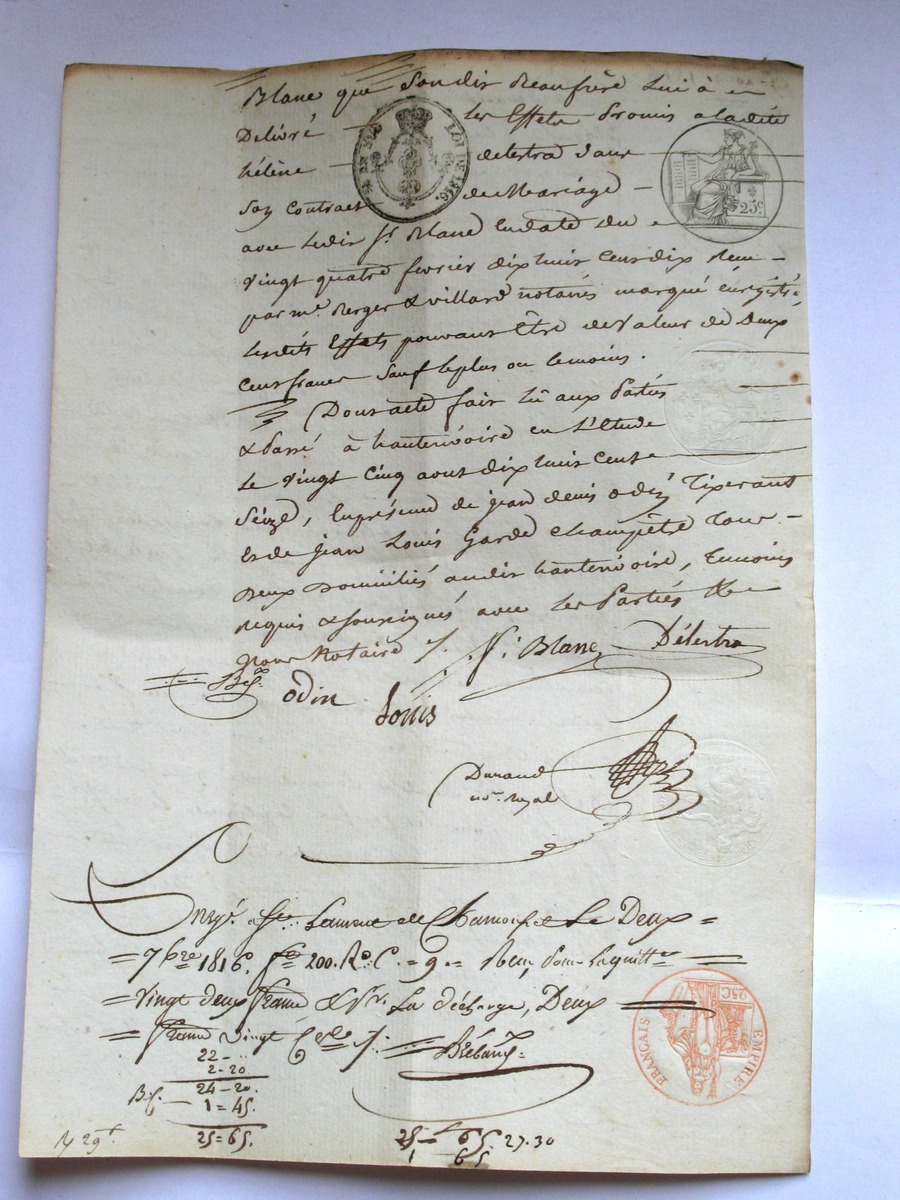 Blanc que Son dit Beaufrère Lui à
Delivré les Effets Promis a ladite
hélène delestra dans
Son Contract de Mariage
avec ledit Sr. Blanc Endate du
vingt quatre fevrier dix huit Cent dix
par me. Berger & villard notaires marqué énrégistré,
Lesdits Effets pouvant Être de valeur de Deux
Cent francs Sauf leplus ou lemoins.
Dont acte fait lû aux Partiés
& Passé à hauterivoire en L'Etude
Le vingt Cinq aout dix huit Cent
Séize, En présence de jean denis odin Tixerant
Et de jean Louis Garde Champêtre Tous
Deux Domiciliés audit hauterivoire, Temoins
Requis & soussignés avec les Partiés
Nous Notaire
Blanc Délestra
odin Louis
Durand
nore. royal
LOI DE 1816.
25c.
Enregé. a St. Laurent de Chamousset Le Deux
7bre 1816. fo 200. Ro. C. 9. Reçu Pour la quittce
vingt deux francs & Pr. La décharge, Deux
francs vingt Ces
22
2-20
24-20
1=45.
25=65.
25 65. 27.30
1 65
EMPIRE FRANÇAIS
25C